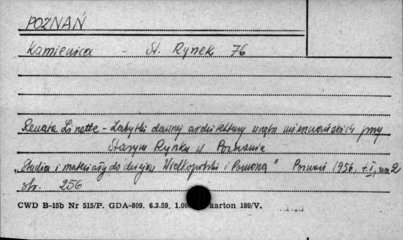 POZNAŃ
Kamienica - St. Rynek 76
Renata Linette - Zabytki dawnej architektury mieszczańskich przy
Starym Rynku w Poznaniu
"Studia i materiały do dziejów Wielkopolski i Pomorza" Poznań 1956, t. I, 2
str. 256
CWD B-15b Nr 515/P. GDA-809. 6.3.59, karton 180/V.